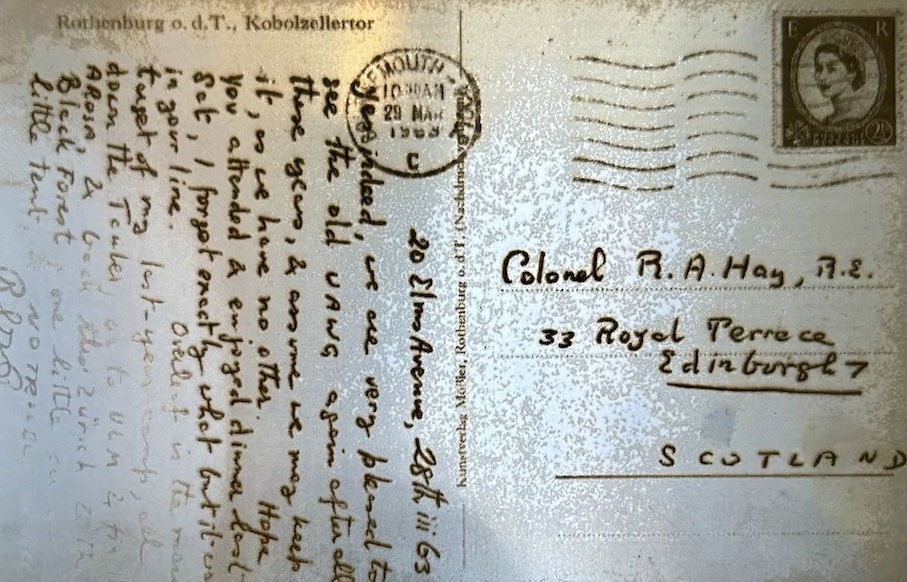 Rothenburg o. d. T., Kobolzellertor
MOUTH
10 30 AM
29 MAR
196
E R
2½
20 Avenue, 28th iii 63
Yes indeed, we are very pleased to
see the old again after all
these years, & assume we may keep
it, as we have no other. Hope
you attended & enjoyed dinner last
Sat, I forget exactly what but it
in your line. Overleaf is the
target of my last-year camp, all
down the Tauber to ULM &
AROSA, & back thro Zürich &
Black Forest, one little
little tent,
Kunstverlag Rothenburg o. d. T.
Colonel R. A. Hay, R.E.
33 Royal Terrace
Edinburgh 7
SCOTLAND